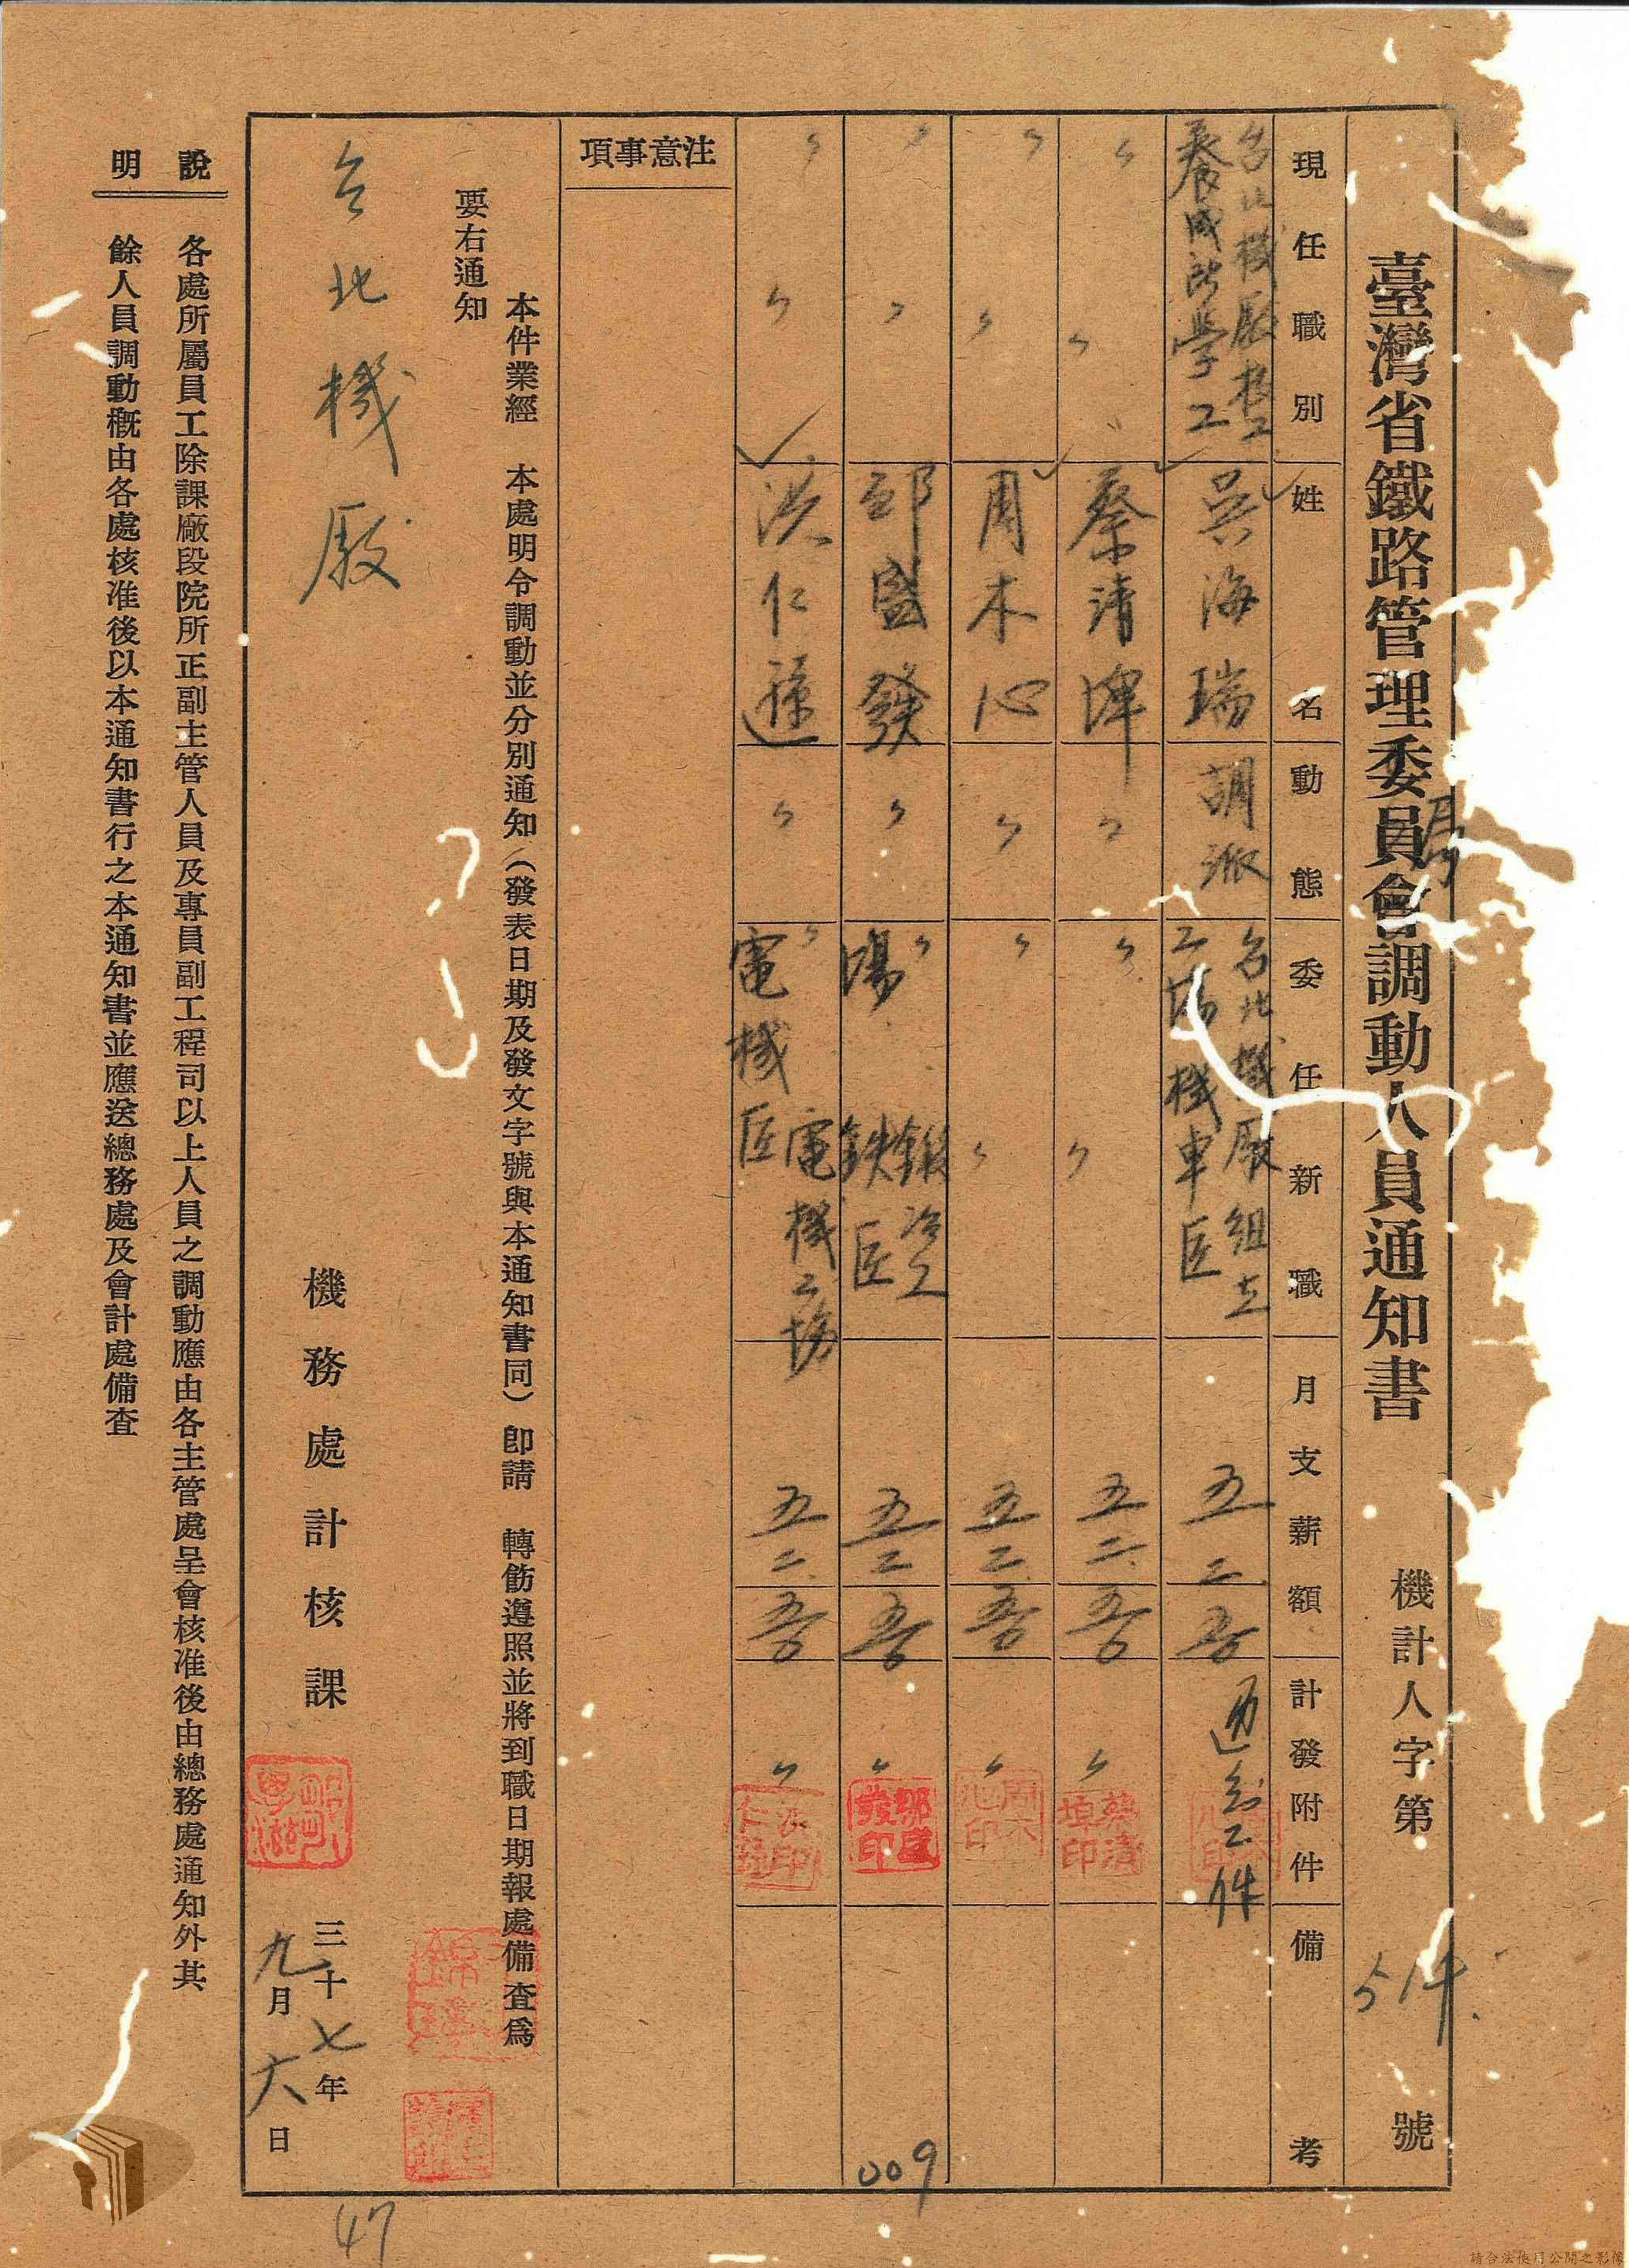 臺灣省鐵路管理委員會調動人員通知書
機計人字第514號
現任職別
姓名
動態
委任新職
月支薪額
計發附件
備考
台北機厰技工
養成所學工
吳海瑞
調派
台北機厰組立
工場機車匠
五二
通知乙件
〃
〃
蔡清
〃
〃
〃
五二
〃
〃
〃
周木心
〃
〃
〃
五二
〃
〃
〃
邱盛發
〃
〃
鍛冶工
場
鉄匠
五二
〃
〃
〃
洪仁
〃
〃
電機工場
電機匠
五二
〃
注意事項
本件業經 本處明令調動並分別通知（發表日期及發文字號與本通知書同）卽請 轉飭遵照並將到職日期報處備查爲
要右通知
台北機厰
機務處計核課
三十七年
九月六日
說明
各處所屬員工除課廠段院所正副主管人員及專員副工程司以上人員之調動應由各主管處呈會核准後由總務處通知外其
餘人員調動概由各處核准後以本通知書行之本通知書並應送總務處及會計處備查
009
47
請合法使用公開之影像